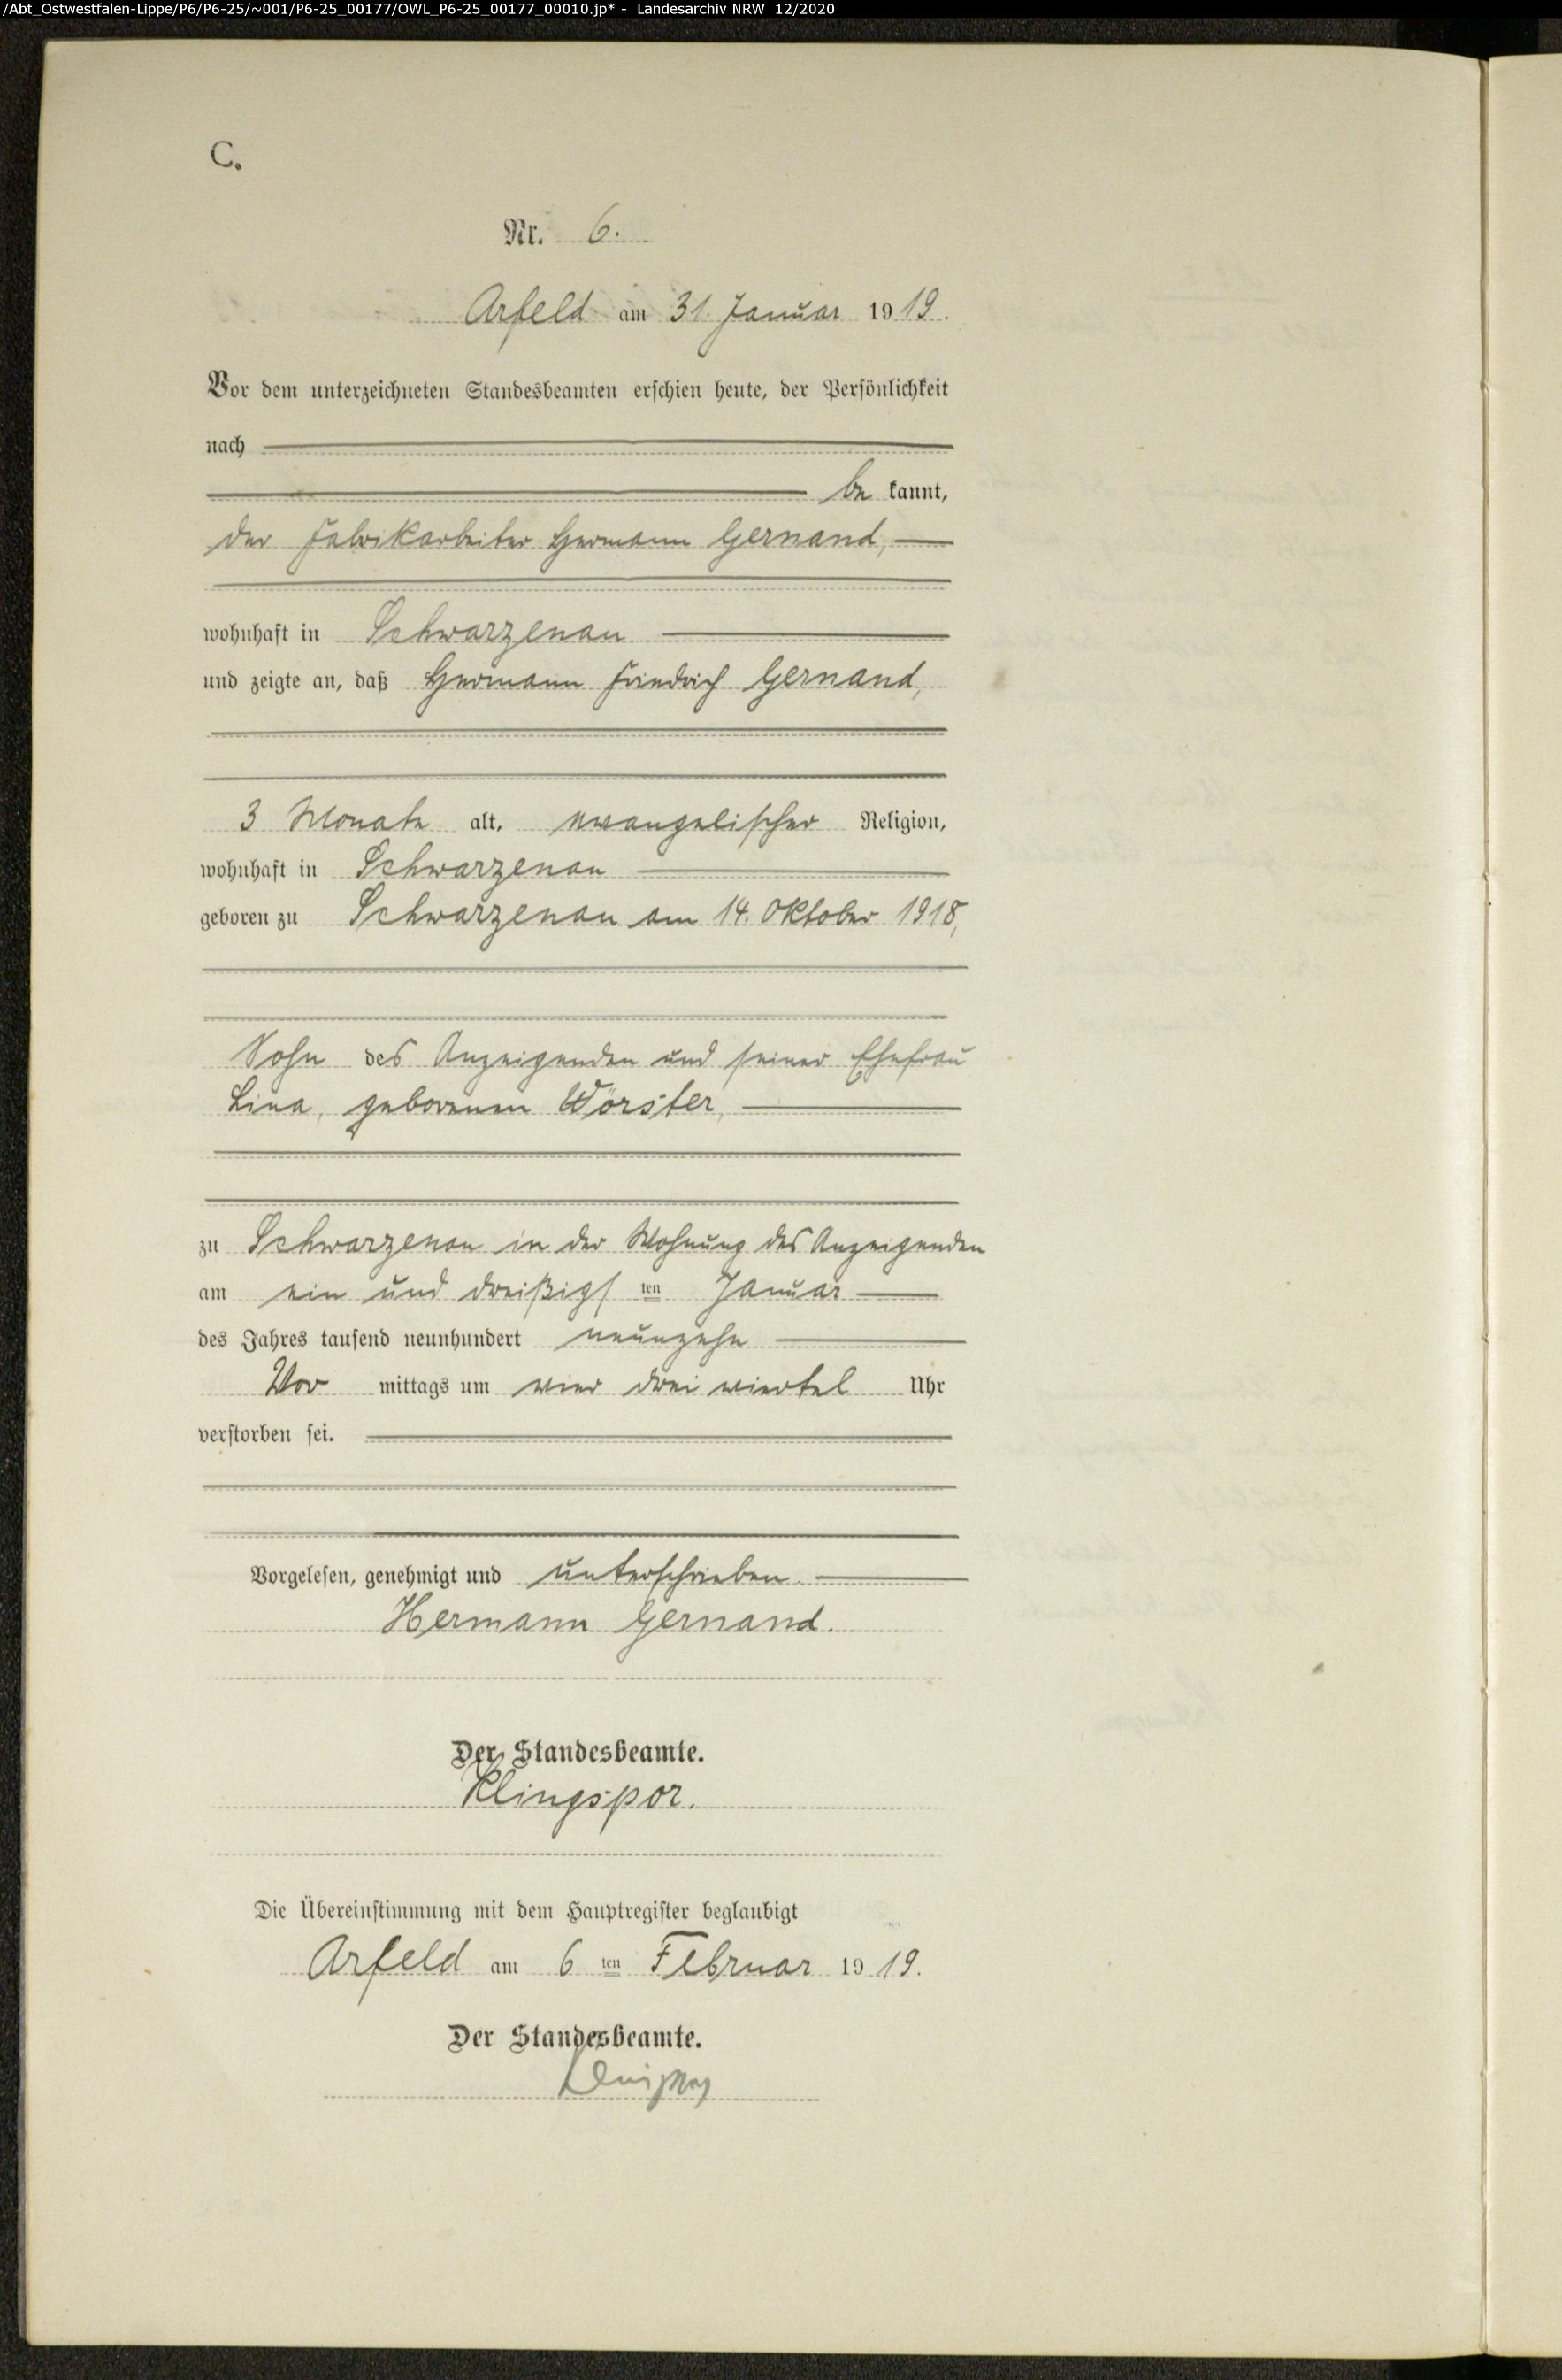 /Abt_Ostwestfalen-Lippe/P6/P6-25/~001/P6-25_00177/OWL_P6-25_00177_00010.jp* - Landesarchiv NRW 12/2020
C.
Nr. 6.
Arfeld am 31. Januar 1919.
Vor dem unterzeichneten Standesbeamten erschien heute, der Persönlichkeit
nach
be kannt,
der Fabrikarbeiter Hermann Gernand,
wohnhaft in Schwarzenau
und zeigte an, daß Hermann Friedrich Gernand,
3 Monate alt, evangelischer Religion,
wohnhaft in Schwarzenau
geboren zu Schwarzenau am 14. Oktober 1918,
Sohn des Anzeigenden und seiner Ehefrau
Lina, geborenen Wörster,
zu Schwarzenau in der Wohnung des Anzeigenden
am ein und dreißigsten Januar
des Jahres tausend neunhundert neunzehn
Vor mittags um vier drei viertel Uhr
verstorben sei.
Vorgelesen, genehmigt und unterschrieben.
Hermann Gernand.
Der Standesbeamte.
Klingspor.
Die Übereinstimmung mit dem Hauptregister beglaubigt
Arfeld am 6 ten Februar 1919.
Der Standesbeamte.